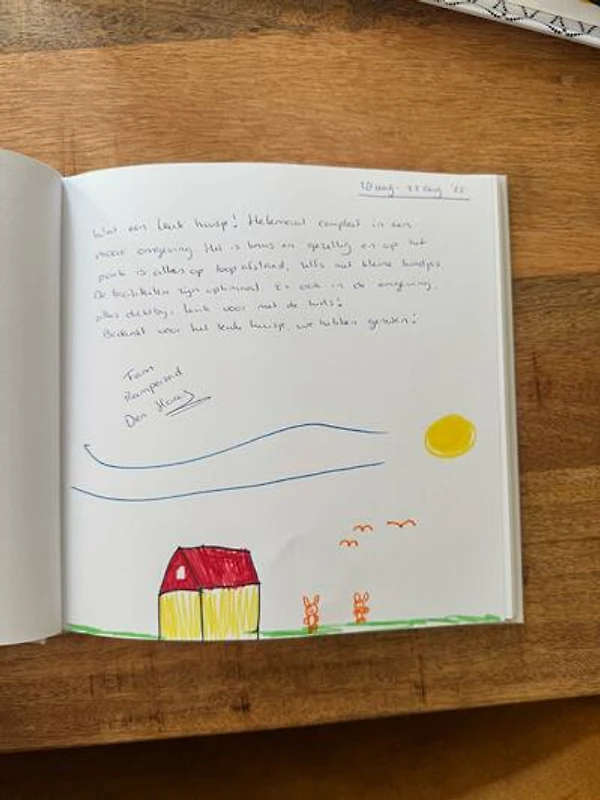 Wat een leuk huisje! Helemaal compleet in een
mooie omgeving. Het is knus en gezellig en op het
park is alles op loop afstand, zelfs met kleine kindjes
De faciliteiten zijn optimaal en ook in de omgeving.
alles dichtbij, leuk voor met de kids!
Bedankt voor het leuke huisje we hebben genoten!
Fam
Den Haag